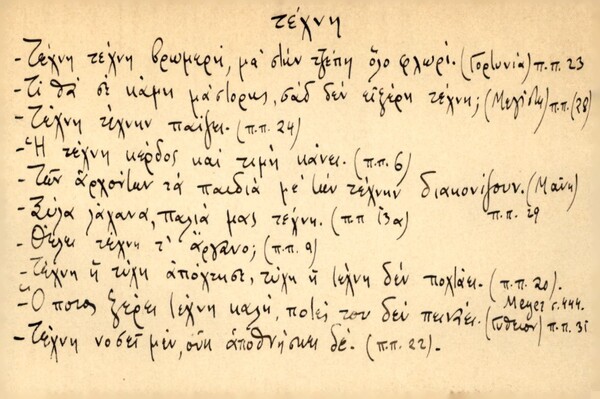 τέχνη
- Τέχνη τέχνη βρωμερή, μα' στὴν τζέπη ὅλο φλωρί. (Γορτυνία) π.π. 23
- Τί θὰ σὲ κάμῃ μάστορης, σὰδ δὲν εἰξέρῃ τέχνη; (Μεγίστη) π.π. (28)
- Τέχνη τέχνην παίζει. (π.π. 24)
- Ἡ τέχνη κέρδος καὶ τιμὴ κάνει. (π.π. 6)
- Τῶν ἀρχόντων τὰ παιδιὰ μὲ τὴν τέχνην διακονίζουν. (Μάνη) π.π. 29
- Ξύλα λάχανα, παλιά μας τέχνη. (π.π 13α)
- Θέλει τέχνη τ' ὄργανο; (π.π. 9)
- Τέχνη ἢ τύχη ἀπόχτησε, τύχη ἢ τέχνη δὲν ποχτάει. (π.π. 20).
- Ὅποιος ξέρει τέχνη καλή, ποτές του δὲν πεινάει. (Γύθειον) π.π. 31
Μεγερ 444.
- Τέχνη νοσεῖ μέν, οὐκ ἀποθνήσκει δέ. (π.π. 22).